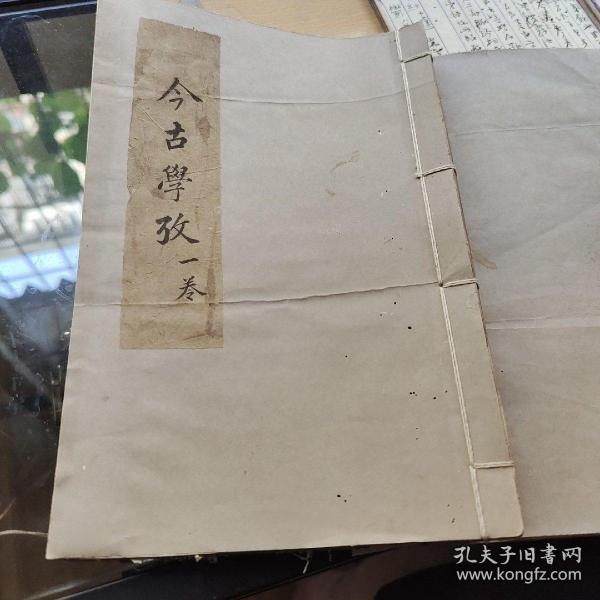 今古學攷一卷
孔夫子旧書网
www.kongfz.com